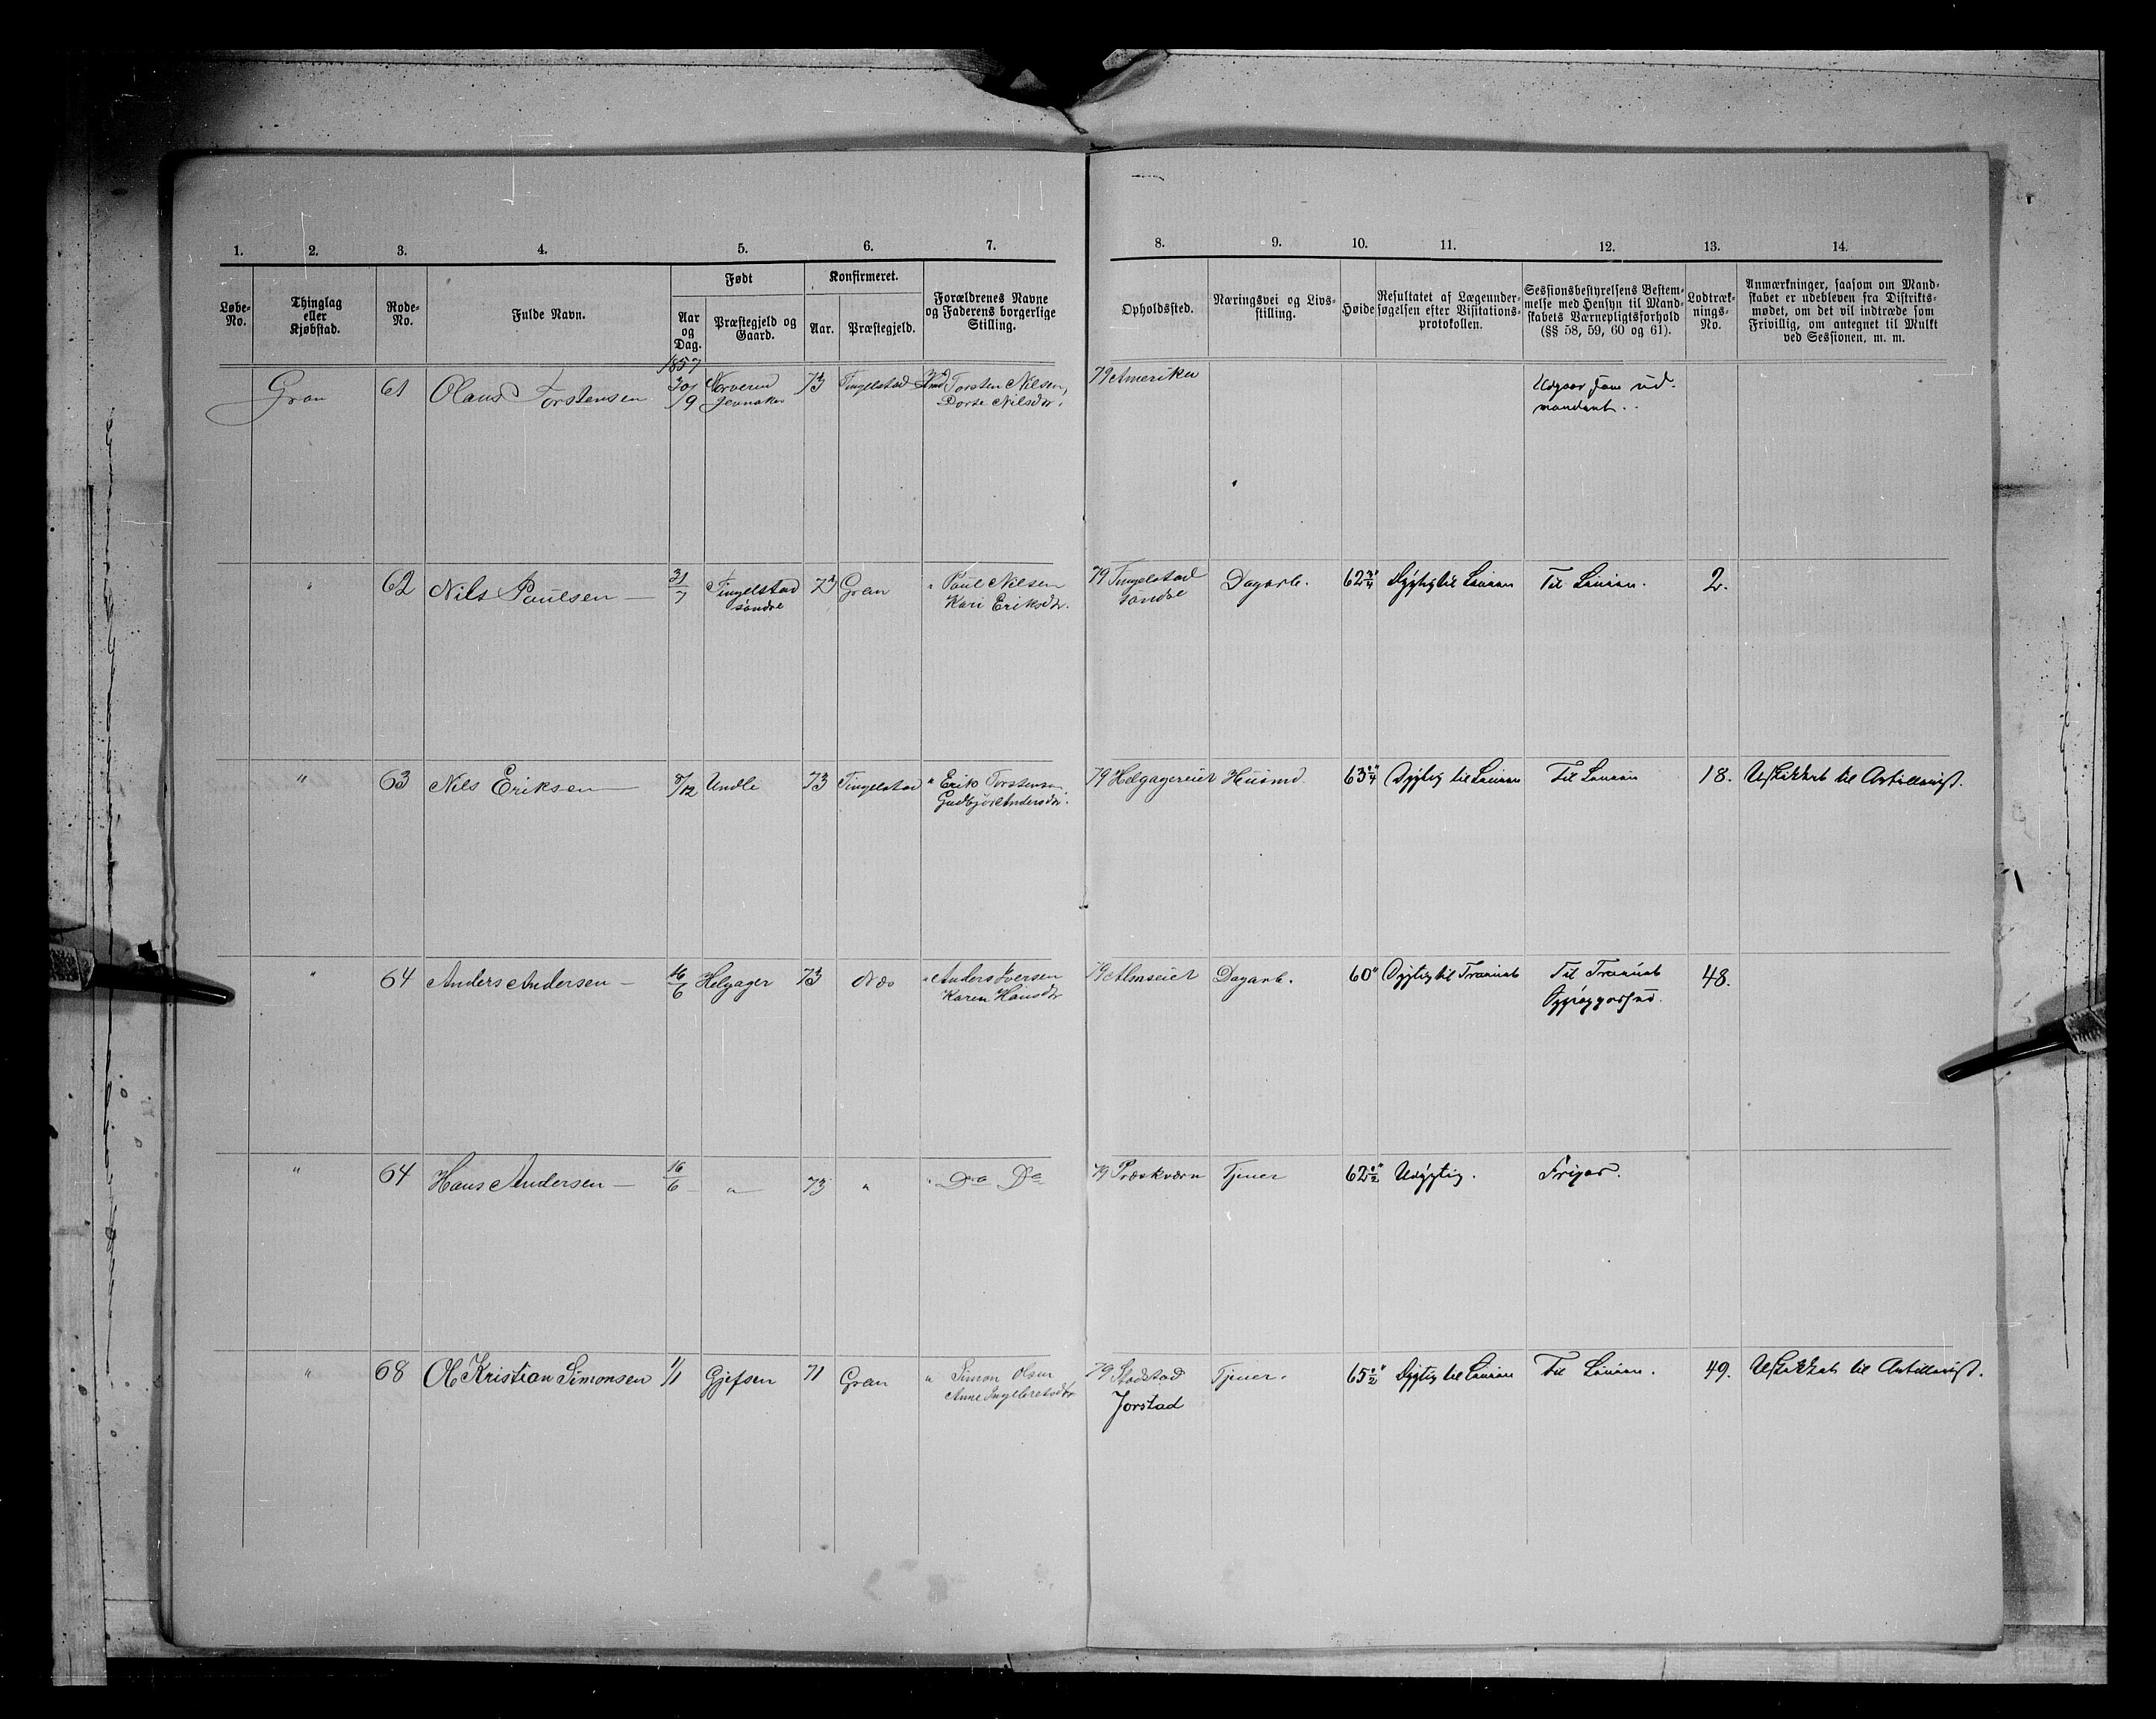 1. 2. 3. 4. 5. 6. 7. 8. 9. 10. 11. 12. 13. 14.
Løbe-No.
Thinglag eller Kjøbstad.
Rode-No.
Fulde Navn.
Født
Aar og Dag.
Præstegjeld og Gaard.
Konfirmeret.
Aar.
Præstegjeld.
Forældrenes Navne og Faderens borgerlige Stilling.
Opholdssted.
Næringsvei og Livsstilling.
Høide
Resultatet af Lægeundersøgelsen efter Visitationsprotokollen.
Sessionsbestyrelsens Bestemmelse med Hensyn til Mandskabets Værnepligtsforhold (§§ 58, 59, 60 og 61).
Lodtræknings-No.
Anmærkninger, saasom om Mandskabet er udebleven fra Distriktsmødet, om det vil indtræde som Frivillig, om antegnet til Mulkt ved Sessionen, m. m.
1857
Gran 61 Olaus Torstensen 9 Jevnaker 73 Tingelstad Torsten Nilsen, 79 Amerika Udgaar som ud-
Dorte Nilsdtr. vandret.
" 62 Nils Paulsen 31/7 Tingelstad 73 Gran " Paul Nilsen 79 Tingelstad Dagarb. 62 3/4" Dygtig til Linien Til Linien. 2.
søndre Kari Eriksdtr. søndre
" 63 Nils Eriksen 8/12 Undle 73 Tingelstad " Erik Torstensen 79 Helgagereiet Husmd. 63 1/4" Dygtig til Linien Til Linien 18. Uskikket til Artillerist.
Gudbjør Andersdtr.
" 64 Anders Andersen 16/6 Helgager 73 Næs " Anders Iversen 79 Almseiet Dagarb. 60" Dygtig til Trainet Til Trainet 48.
Karen Hansdtr
" 64 Hans Andersen 16/6 " 73 " " Do Do 79 Præskværn Tjener 62 1/2" Udygtig. Frigar.
" 68 Ol Kristian Simonsen 1/1 Gjefsen 71 Gran " Simon Olsen 79 Stadstad Tjener. 65 1/2" Dygtig til Linien Til Linien. 49. Uskikket til Artillerist.
Anne Ingebretsdtr Jorstad